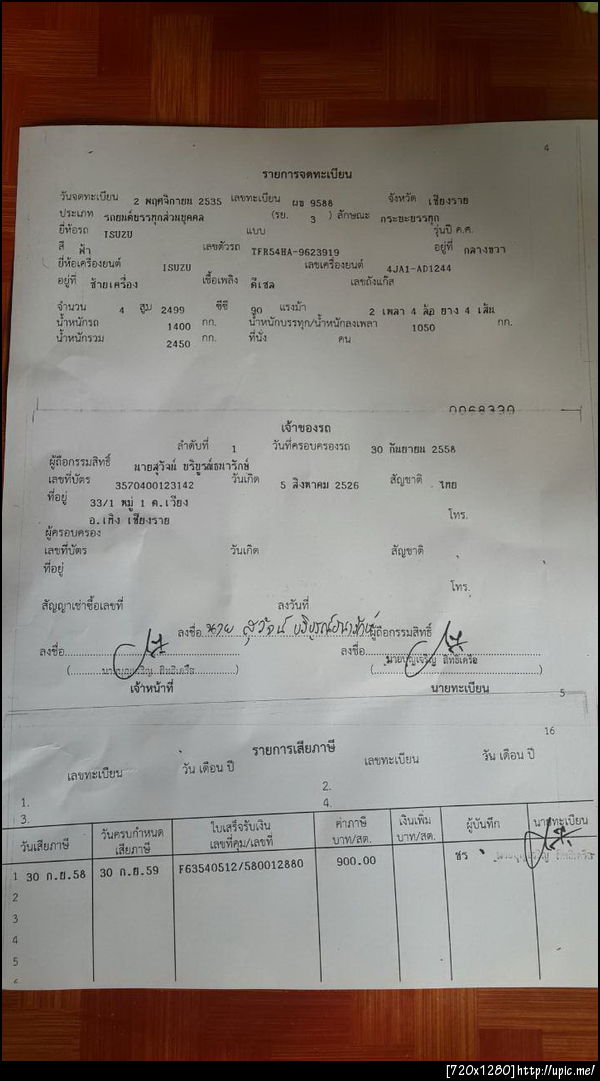 4
รายการจดทะเบียน
วันจดทะเบียน 2 พฤศจิกายน 2535 เลขทะเบียน ผข 9588 จังหวัด เชียงราย
ประเภท รถยนต์บรรทุกส่วนบุคคล (รย. 3 ) ลักษณะ กระบะบรรทุก
ยี่ห้อรถ ISUZU แบบ รุ่นปี ค.ศ.
สี ฟ้า เลขตัวรถ TFR54HA-9623919 อยู่ที่ กลางขวา
ยี่ห้อเครื่องยนต์ ISUZU เลขเครื่องยนต์ 4JA1-AD1244
อยู่ที่ ซ้ายเครื่อง เชื้อเพลิง ดีเซล เลขถังแก๊ส
จำนวน 4 สูบ 2499 ซีซี 90 แรงม้า 2 เพลา 4 ล้อ ยาง 4 เส้น
น้ำหนักรถ 1400 กก. น้ำหนักบรรทุก/น้ำหนักลงเพลา 1050 กก.
น้ำหนักรวม 2450 กก. ที่นั่ง คน
เจ้าของรถ
ลำดับที่ 1 วันที่ครอบครองรถ 30 กันยายน 2558
ผู้ถือกรรมสิทธิ์ นายสุวัจน์ บริบูรณ์ธนารักษ์
เลขที่บัตร 3570400123142 วันเกิด 5 สิงหาคม 2526 สัญชาติ ไทย
ที่อยู่ 33/1 หมู่ 1 ต.เวียง
อ.เทิง เชียงราย โทร.
ผู้ครอบครอง
เลขที่บัตร วันเกิด สัญชาติ
ที่อยู่
โทร.
สัญญาเช่าซื้อเลขที่ ลงวันที่
ลงชื่อ นาย สุวัจน์ บริบูรณ์ธนารักษ์ ผู้ถือกรรมสิทธิ์
ลงชื่อ ลงชื่อ
(นายบุญเจริญ สิทธิเครือ) (นายบุญเจริญ สิทธิเครือ)
เจ้าหน้าที่ นายทะเบียน
5
16
รายการเสียภาษี
เลขทะเบียน วัน เดือน ปี เลขทะเบียน วัน เดือน ปี
1. 2.
3. 4.
วันเสียภาษี วันครบกำหนดเสียภาษี ใบเสร็จรับเงิน เลขที่คุม/เลขที่ ค่าภาษี บาท/สต. เงินเพิ่ม บาท/สต. ผู้บันทึก นายทะเบียน
1 30 ก.ย.58 30 ก.ย.59 F63540512/580012880 900.00 ชร นายบุญเจริญ สิทธิเครือ
2
3
4
5
[720x1280]http://upic.me/